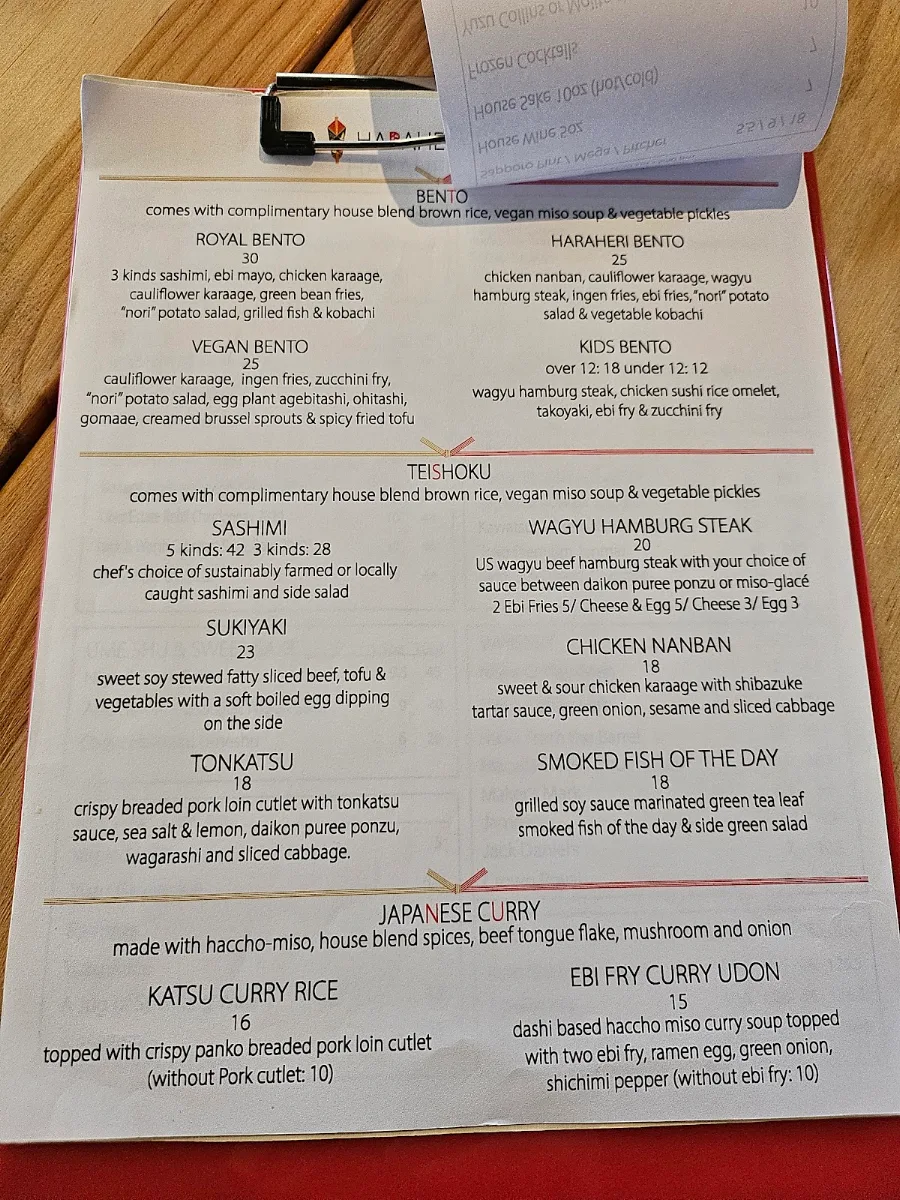 Yuzu Collins or Mojito
10
Frozen Cocktails
7
House Sake 10oz (hot/cold)
7
House Wine 5oz
5.5 / 9 / 18
Sapporo Pint / Mega / Pitcher
BENTO
comes with complimentary house blend brown rice, vegan miso soup & vegetable pickles
ROYAL BENTO
30
3 kinds sashimi, ebi mayo, chicken karaage,
cauliflower karaage, green bean fries,
"nori" potato salad, grilled fish & kobachi
HARAHERI BENTO
25
chicken nanban, cauliflower karaage, wagyu
hamburg steak, ingen fries, ebi fries, "nori" potato
salad & vegetable kobachi
VEGAN BENTO
25
cauliflower karaage, ingen fries, zucchini fry,
"nori" potato salad, egg plant agebitashi, ohitashi,
gomaae, creamed brussel sprouts & spicy fried tofu
KIDS BENTO
over 12: 18 under 12: 12
wagyu hamburg steak, chicken sushi rice omelet,
takoyaki, ebi fry & zucchini fry
TEISHOKU
comes with complimentary house blend brown rice, vegan miso soup & vegetable pickles
SASHIMI
5 kinds: 42 3 kinds: 28
chef's choice of sustainably farmed or locally
caught sashimi and side salad
WAGYU HAMBURG STEAK
20
US wagyu beef hamburg steak with your choice of
sauce between daikon puree ponzu or miso-glacé
2 Ebi Fries 5/ Cheese & Egg 5/ Cheese 3/ Egg 3
SUKIYAKI
23
sweet soy stewed fatty sliced beef, tofu &
vegetables with a soft boiled egg dipping
on the side
CHICKEN NANBAN
18
sweet & sour chicken karaage with shibazuke
tartar sauce, green onion, sesame and sliced cabbage
TONKATSU
18
crispy breaded pork loin cutlet with tonkatsu
sauce, sea salt & lemon, daikon puree ponzu,
wagarashi and sliced cabbage.
SMOKED FISH OF THE DAY
18
grilled soy sauce marinated green tea leaf
smoked fish of the day & side green salad
JAPANESE CURRY
made with haccho-miso, house blend spices, beef tongue flake, mushroom and onion
KATSU CURRY RICE
16
topped with crispy panko breaded pork loin cutlet
(without Pork cutlet: 10)
EBI FRY CURRY UDON
15
dashi based haccho miso curry soup topped
with two ebi fry, ramen egg, green onion,
shichimi pepper (without ebi fry: 10)